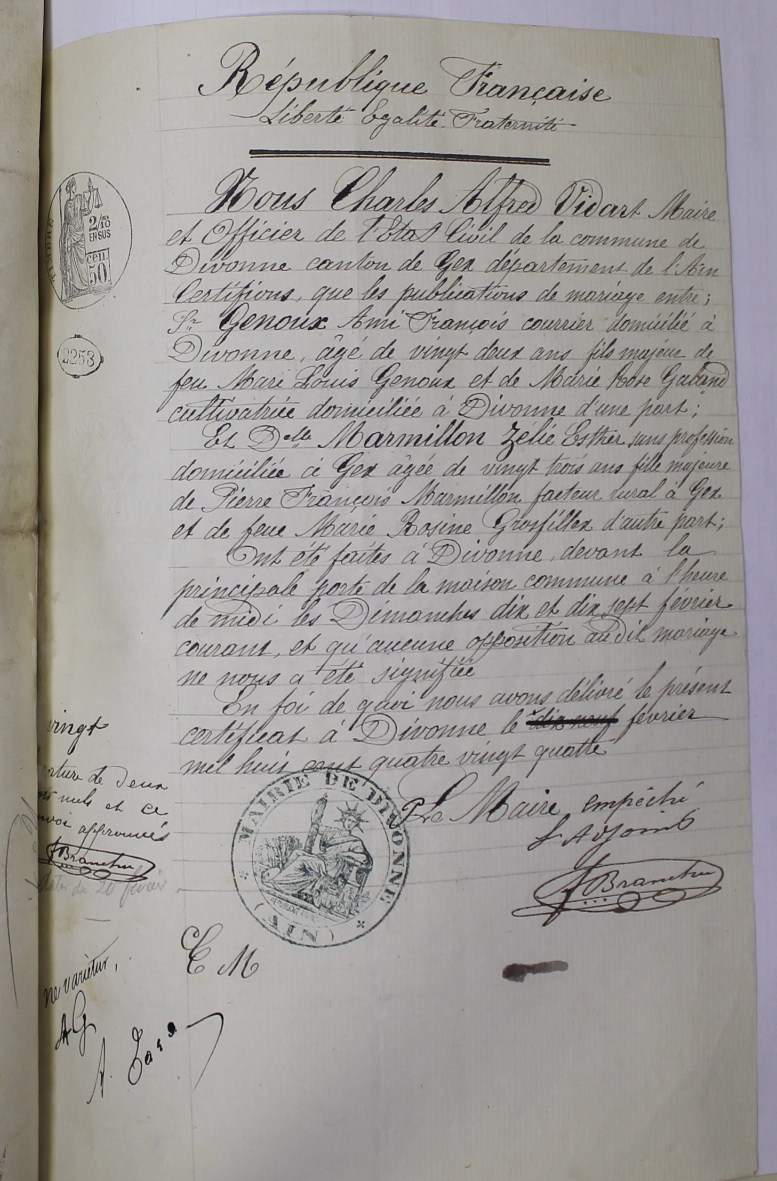 République Française
Liberté Egalité Fraternité
Nous Charles Alfred Vidart Maire
et Officier de l'Etat Civil de la commune de
Divonne canton de Gex département de l'Ain
Certifions, que les publications de mariage entre;
Sr Genoux Ami François courrier domicilié à
Divonne, âgé de vingt deux ans fils majeur de
feu Marc Louis Genoux et de Marie Rose Gaband
cultivatrice domiciliée à Divonne d'une part;
Et Delle Marmillon Zélie Esther sans profession
domiciliée à Gex âgée de vingt trois ans fille majeure
de Pierre François Marmillon facteur rural à Gex
et de feue Marie Rosine Grosfillex d'autre part;
Ont été faites à Divonne, devant la
principale porte de la maison commune à l'heure
de midi les Dimanches dix et dix sept février
courant, et qu'aucune opposition audit mariage
ne nous a été signifiée
En foi de quoi nous avons délivré le présent
certificat à Divonne le dix neuf février
mil huit cent quatre vingt quatre
P. Le Maire empêché
L'Adjoint
F Branchu
MAIRIE DE DIVONNE
(AIN)
C M
TIMBRE
2/10
EN SUS
50
2253
vingt
rature de deux
mots nuls et ce
renvoi approuvés
F Branchu
date du 20 février
ne varietur,
AG
A.